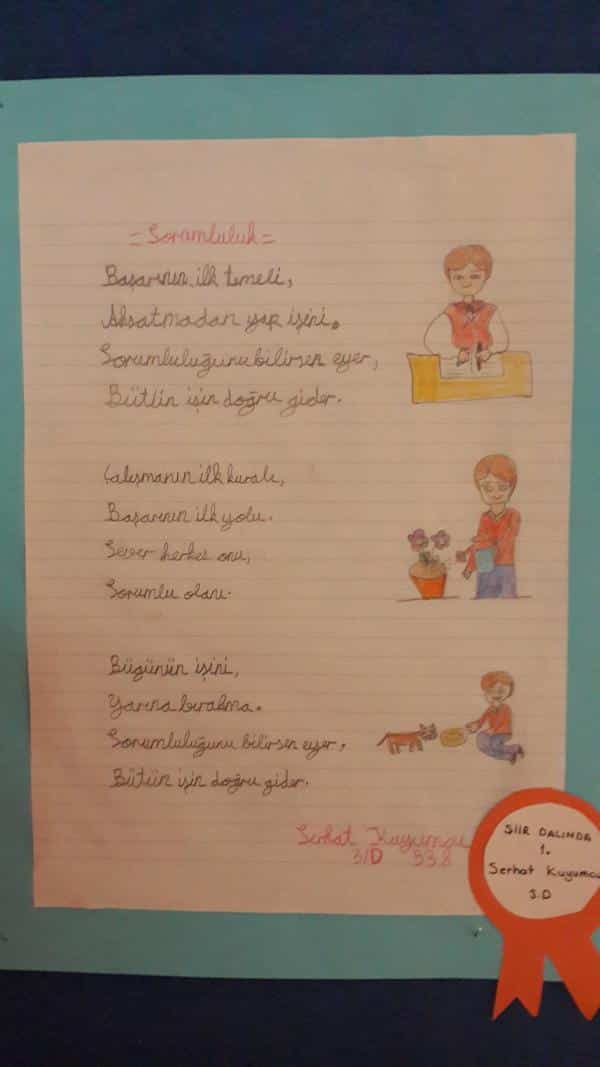 = Sorumluluk =
Başarının ilk temeli,
Aksatmadan yap işini.
Sorumluluğunu bilirsen eyer,
Bütün işin doğru gider.
Çalışmanın ilk kuralı,
Başarının ilk yolu.
Sever herkes onu,
Sorumlu olanı.
Bugünün işini,
Yarına bırakma.
Sorumluluğunu bilirsen eyer,
Bütün işin doğru gider.
Serhat Kuyumcu
3/D 538
ŞİİR DALINDA
1.
Serhat Kuyumcu
3.D